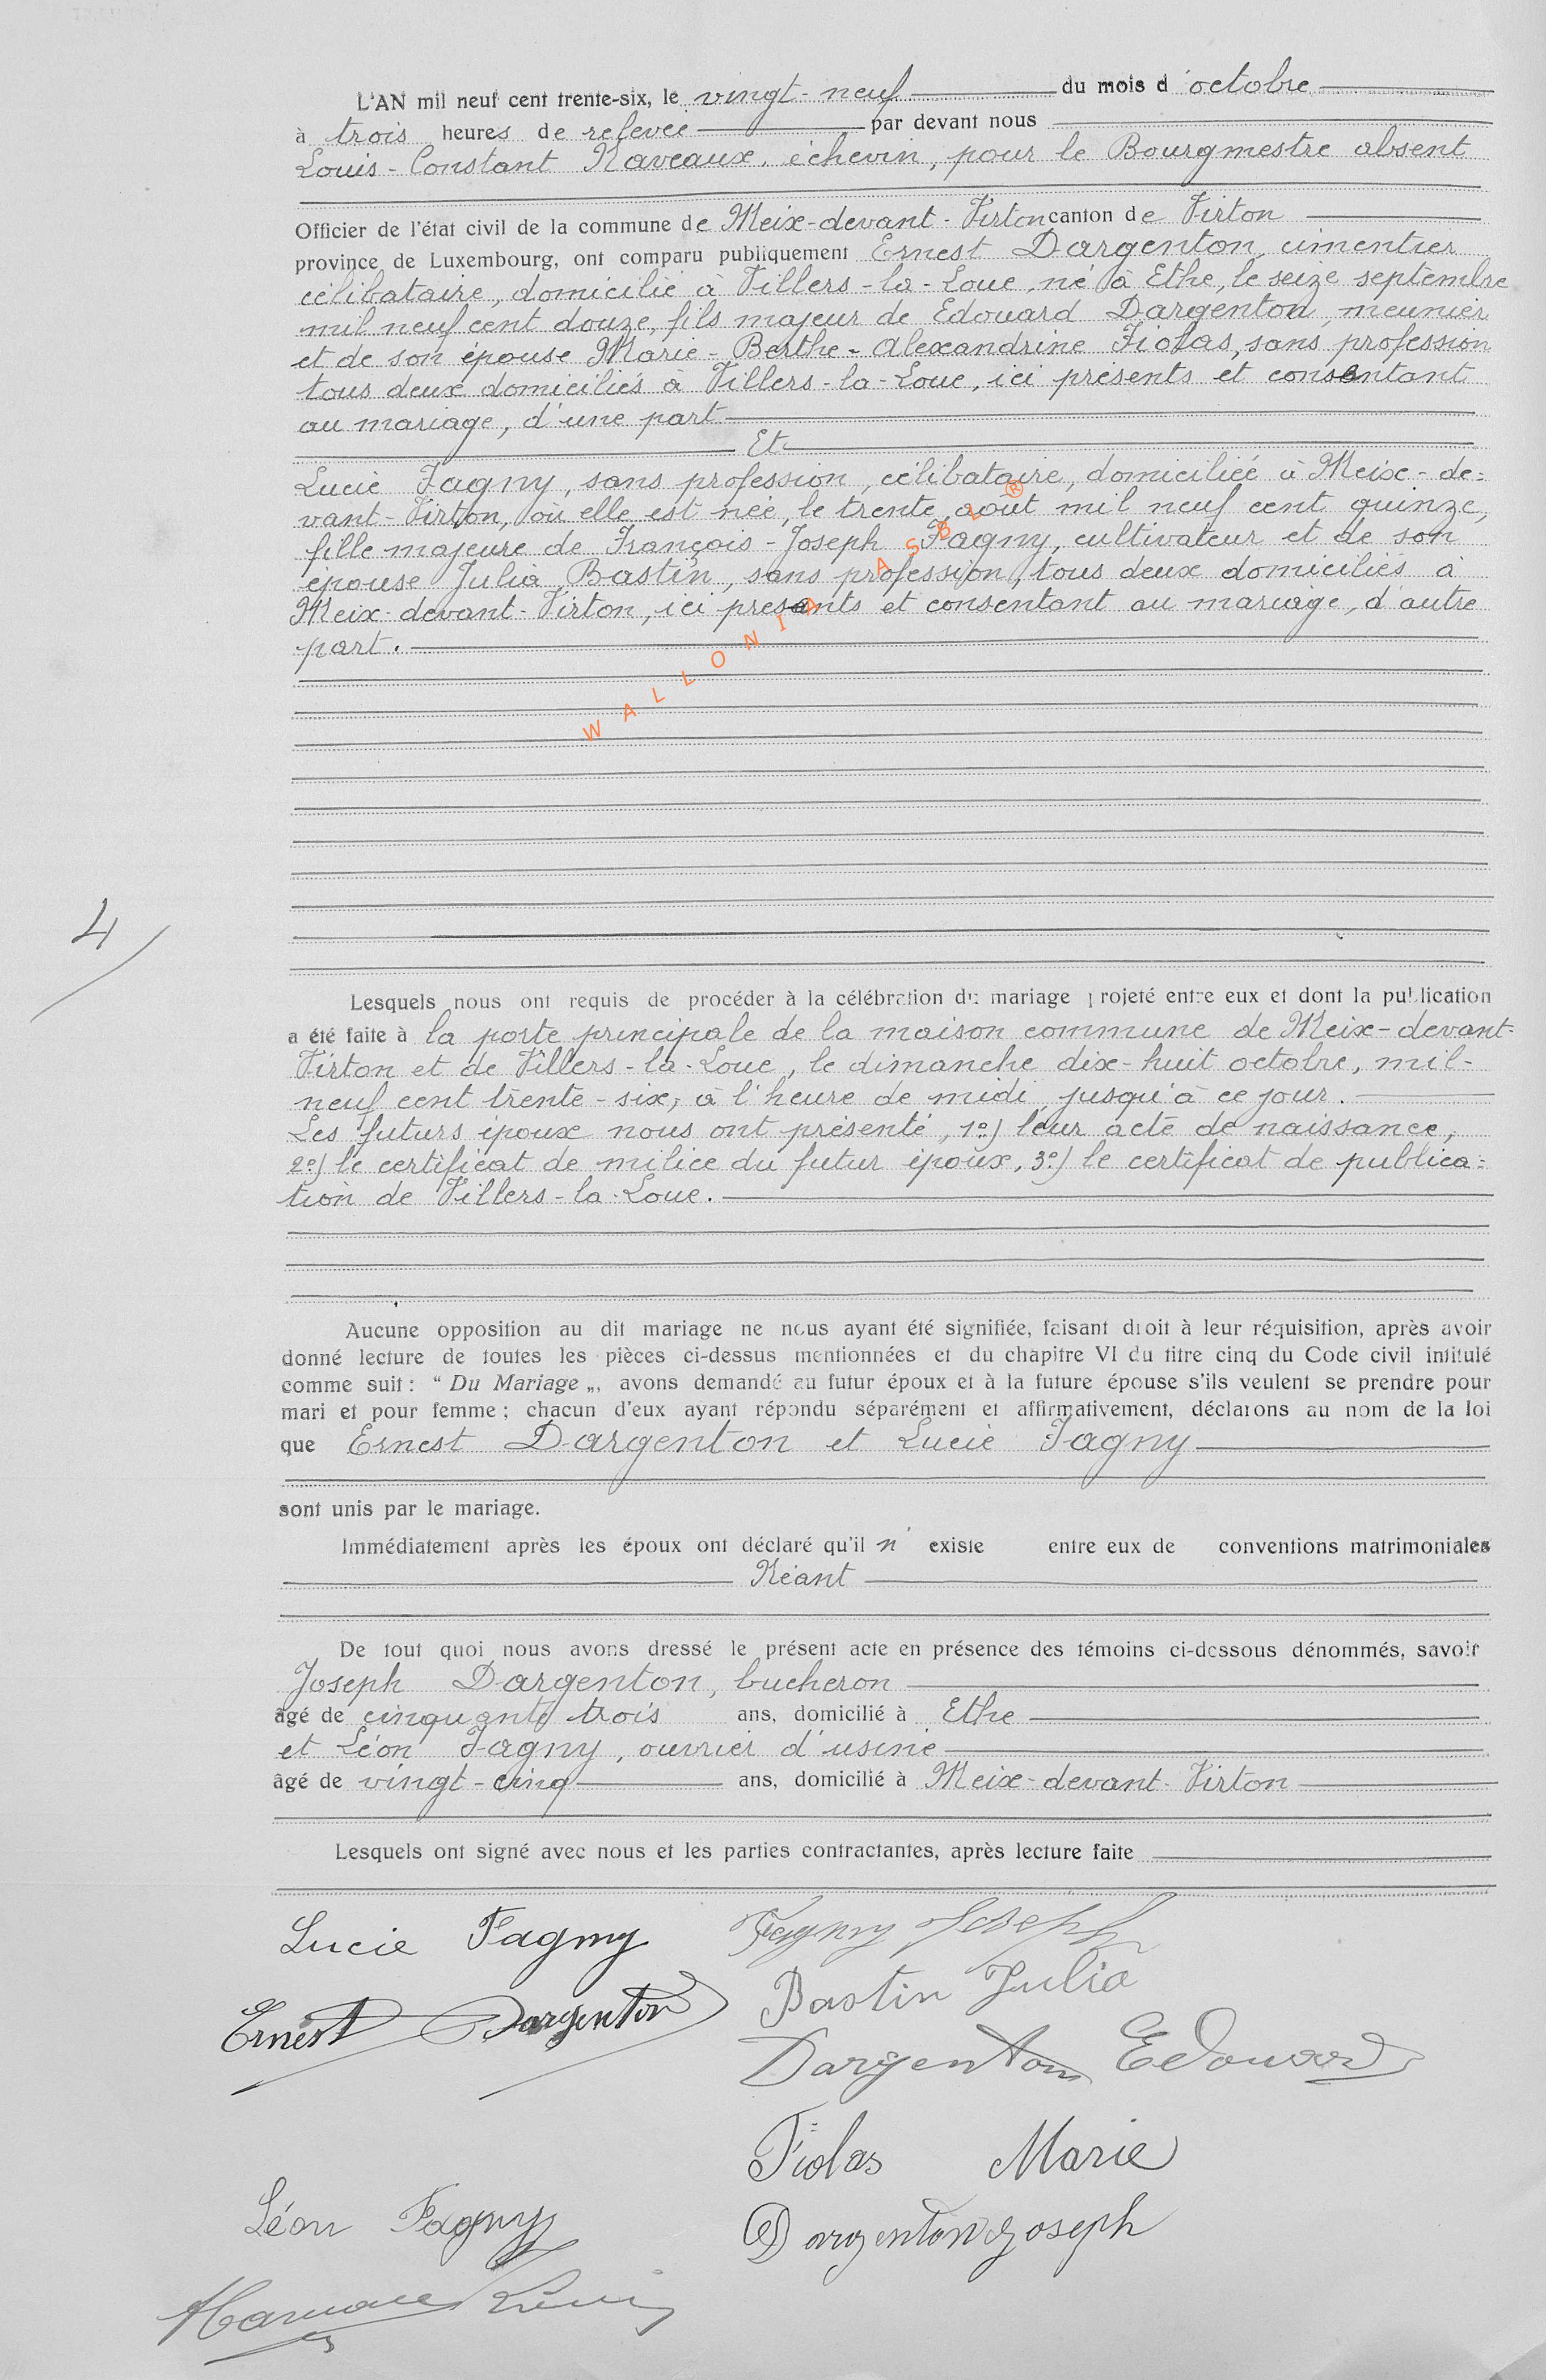 L'AN mil neuf cent trente-six, le vingt-neuf du mois d'octobre
à trois heures de relevée par devant nous
Louis-Constant Naveaux, échevin, pour le Bourgmestre absent
Officier de l'état civil de la commune de Meix-devant-Virton canton de Virton
province de Luxembourg, ont comparu publiquement Ernest Dargenton, cimentier
célibataire, domicilié à Villers-la-Loue, né à Ethe, le seize septembre
mil neuf cent douze, fils majeur de Edouard Dargenton, meunier
et de son épouse Marie-Berthe-Alexandrine Fiolas, sans profession
tous deux domiciliés à Villers-la-Loue, ici présents et consentant
au mariage, d'une part
Et
Lucie Fagny, sans profession, célibataire, domiciliée à Meix-de=
vant-Virton, où elle est née, le trente août mil neuf cent quinze,
fille majeure de François-Joseph Fagny, cultivateur et de son
épouse Julia Bastin, sans profession, tous deux domiciliés à
Meix-devant-Virton, ici présents et consentant au mariage, d'autre
part.
WALLONIA ASBL ®
4
Lesquels nous ont requis de procéder à la célébration du mariage projeté entre eux et dont la publication
a été faite à la porte principale de la maison commune de Meix-devant-
Virton et de Villers-la-Loue, le dimanche dix-huit octobre, mil-
neuf cent trente-six, à l'heure de midi, jusqu'à ce jour.
Les futurs époux nous ont présenté, 1°) leur acte de naissance,
2°) le certificat de milice du futur époux, 3°) le certificat de publica=
tion de Villers-la-Loue.
Aucune opposition au dit mariage ne nous ayant été signifiée, faisant droit à leur réquisition, après avoir
donné lecture de toutes les pièces ci-dessus mentionnées et du chapitre VI du titre cinq du Code civil intitulé
comme suit : “ Du Mariage „, avons demandé au futur époux et à la future épouse s'ils veulent se prendre pour
mari et pour femme ; chacun d'eux ayant répondu séparément et affirmativement, déclarons au nom de la loi
que Ernest Dargenton et Lucie Fagny
sont unis par le mariage.
Immédiatement après les époux ont déclaré qu'il n'existe entre eux de conventions matrimoniales
Néant
De tout quoi nous avons dressé le présent acte en présence des témoins ci-dessous dénommés, savoir
Joseph Dargenton, bucheron
âgé de cinquante trois ans, domicilié à Ethe
et Léon Fagny, ouvrier d'usine
âgé de vingt-cinq ans, domicilié à Meix-devant-Virton
Lesquels ont signé avec nous et les parties contractantes, après lecture faite
Lucie Fagny Fagny Joseph
Bastin Julia
Ernest Dargenton
Dargenton Edouard
Fiolas Marie
Léon Fagny
Dargenton Joseph